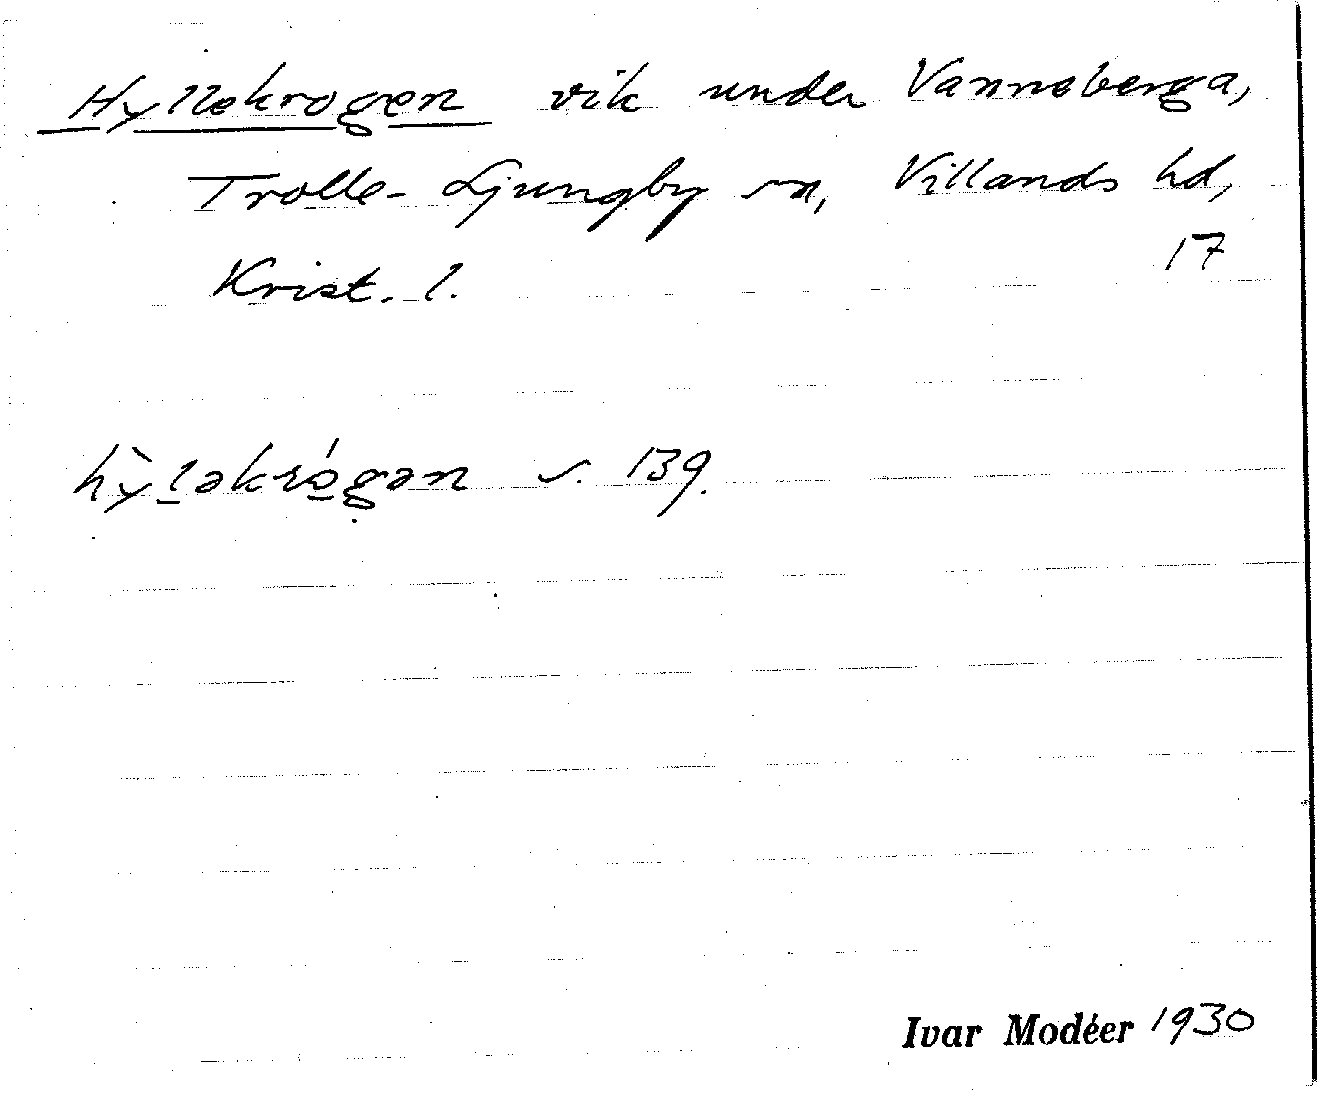 Hyllekrogen vik under Vanneberga,
Trolle-Ljungby sn, Villands hd,
Krist. l. 17
hỳl̠əkró̠gən s. 139.
Ivar Modéer 1930